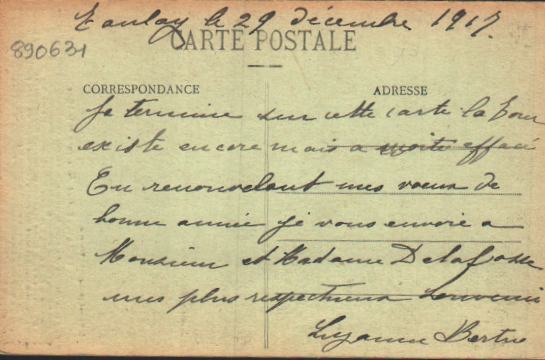 Taulay le 29 décembre 1917.
890631
CARTE POSTALE
CORRESPONDANCE
ADRESSE
Je termine sur cette carte la Tour
existe encore mais a moitié effacé
En renouvelant mes voeux de
bonne année je vous envoie a
Monsieur et Madame Delafosse
mes plus respectueux souvenirs
Suzanne